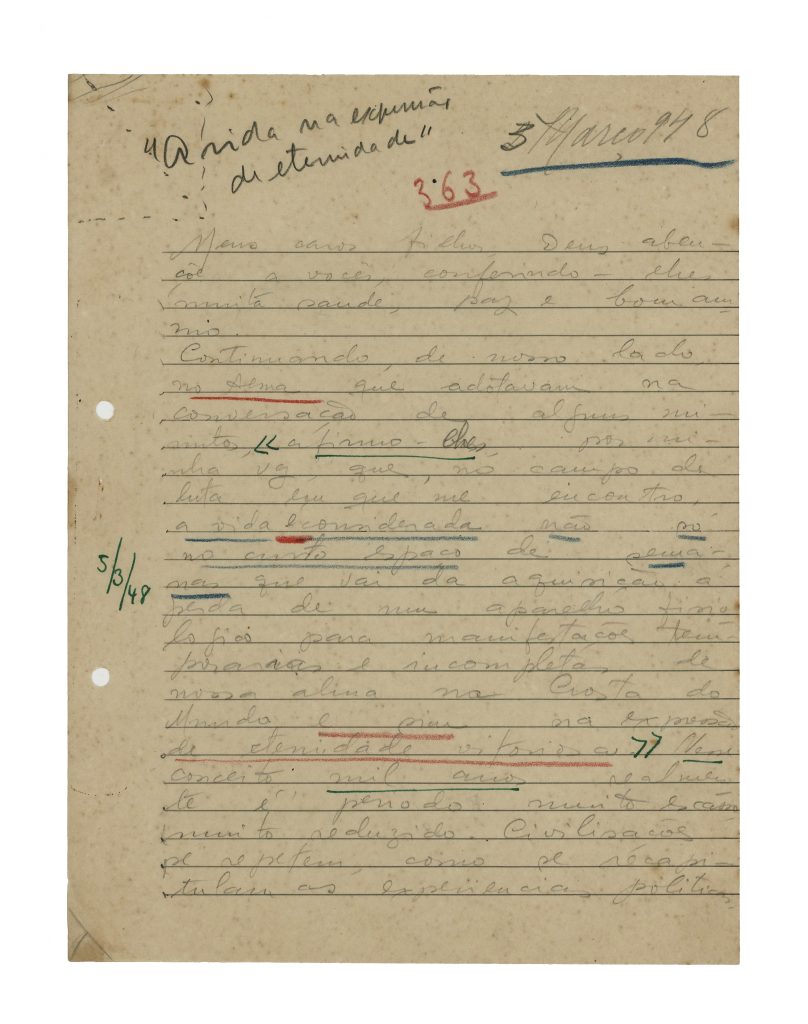 "A vida na expressão
de eternidade"
3 Março 948
363
Meus caros filhos, Deus aben-
çôe a vocês, conferindo-lhes
muita saude, paz e bom ani-
mo.
Continuando, de nosso lado,
no tema que adotavam na
conversação de alguns mi-
nutos, « afirmo-lhes, por mi-
nha vez, que, no campo de
luta em que me encontro,
a vida é considerada não só
no curto espaço de sema-
nas que vai da aquisição á
perda de um aparelho fisio
logico para manifestações tem-
porarias e incompletas de
nossa alma na Crosta do
Mundo, e sim na expressão
de eternidade vitoriosa » Nesse
conceito, mil anos realmen
te é periodo muito escasso
muito reduzido. Civilisações
se repetem, como se recapi-
tulam as experiencias politicas
5/3/48